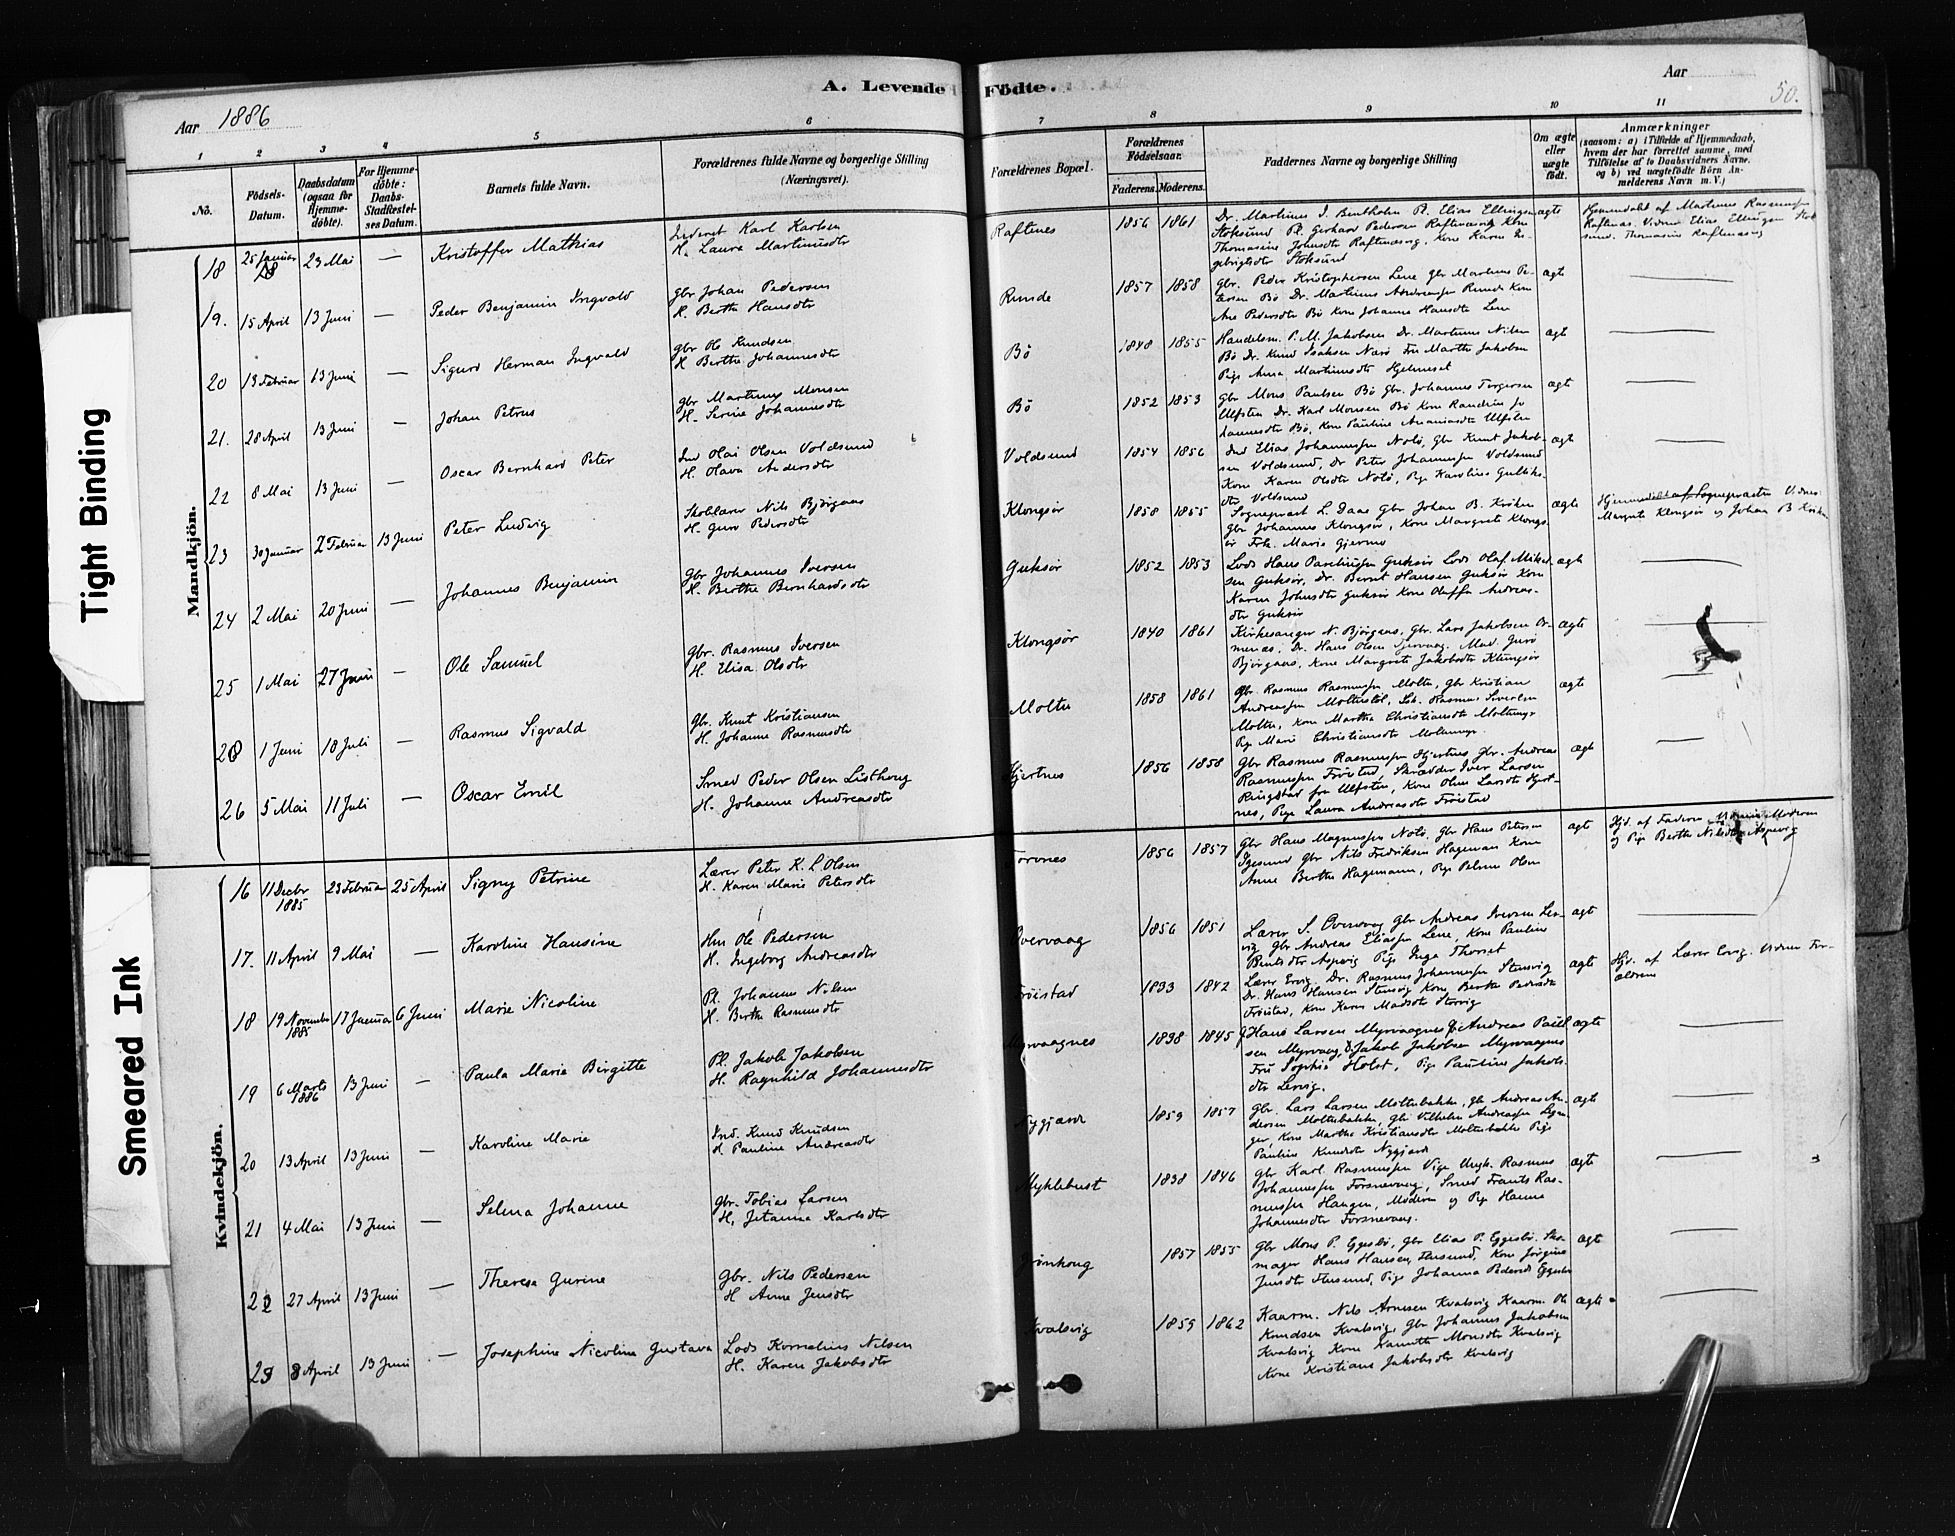 Tight Binding
Smeared Ink
Aar 1886
A. Levende Fødte.
Aar
50.
1
2
3
4
5
6
7
8
9
10
11
No.
Fødsels-Datum.
Daabsdatum (ogsaa for Hjemmedøbte).
For Hjemmedøbte: Daabs-Stadfæstelses Datum.
Barnets fulde Navn.
Forældrenes fulde Navne og borgerlige Stilling (Næringsvei).
Forældrenes Bopæl.
Forældrenes Fødselsaar.
Faderens. Moderens.
Faddernes Navne og borgerlige Stilling
Om ægte eller uægte født.
Anmærkninger
(saasom: a) i Tilfælde af Hjemmedaab,
hvem der har forrettet samme, med
Tilføielse af to Daabsvidners Navne.
og b) ved uægtefødte Børn Anmelderens Navn m. V.)
Mandkjøn.
18 25 Januar 23 Mai — Kristoffer Mathias
Karl Karlsen
H. Laura Martinusdtr
Raftenes 1856 1861
Elias Ellingsen ægte
19. 15 April 13 Juni — Peder Benjamin Ingvald
Gbr Johan Pedersen
H. Berthe Hansdtr
Runde 1857 1858
Gbr. Peder Kristophersen Lene Gbr Martinus Pe-
tersen Bø Dr. Martinus Andreassen Runde Kone
Ane Pedersdtr Bø Kone Johanne Hansdtr Lene
ægte —
20 13 Februar 13 Juni — Sigurd Herman Ingvald
Gbr Ole Knudsen
H Berthe Johannesdtr
Bö 1848 1855
Handelsm. P. M. Jakobsen Dr. Martinus Nilsen
Bö Dr. Knud Isaksen Nærö Fru Marthe Jakobsen
Pige Anna Martinusdtr
ægte —
21. 28 April 13 Juni — Johan Petrus
Gbr Martinus Monsen
H. Serine Johannesdtr
Bö 1852 1853
Gbr Mons Paulsen Bö Gbr. Johannes Torgersen
Ulfsten Dr. Karl Monsen Bö Kone Randine Jo
hannesdtr Bö, Kone Pauline Ananiasdtr Ulfsten
ægte —
22 8 Mai 13 Juni — Oscar Bernhard Peter
Ind Olai Olsen Voldsund
H. Olava Andersdtr
Voldsund 1854 1856
Ind Elias Johannessen Notö, Gbr Knut Jakob-
sen Voldsund, Dr Peter Johannessen Voldsund
Kone Karen Olsdtr Notö, Pige Karoline Gulliks-
dtr Voldsund
ægte —
23 30 Januar 2 Februar 13 Juni Peter Ludvig
Skolelærer Nils Björgaas
H. Guro Pedersdtr
Klongsör 1858 1855
Sogneprest L. Daae Gbr Johan B. Kriken
Gbr Johannes Klongsör, Kone Margrete Klongs-
ör Frk. Marie Gjermo
ægte
Margrete Klongsör og Johan B
24 2 Mai 20 Juni — Johannes Benjamin
Gbr Johannes Iversen
H. Berthe Bernhardsdtr
Guksör 1852 1853
Lods Hans Guksör Lods Olaf Mikel-
sen Guksör, Dr. Bernt Hansen Guksör Kone
Karen Johnsdtr Guksör Kone Oluffa Andreas-
dtr Guksör
ægte —
25 1 Mai 27 Juni — Ole Samuel
Gbr. Rasmus Iversen
H. Elisa Olsdtr
Klongsör 1840 1861
Kirkesanger N. Björgaas, Gbr. Lars Jakobsen Or-
menæs, Dr. Hans Olsen Mad. Guro
Björgaas, Kone Margrete Jakobsdtr Klungsör
ægte —
28 1 Juni 18 Juli — Rasmus Sigvald
Gbr. Knut Kristiansen
H. Johanne Rasmusdtr
Moltu 1858 1861
Gbr. Rasmus Rasmussen Moltu, Gbr Kristian
Andreassen Moltustöl, Rasmus Sivertsen
Moltu, Kone Marthe Christiansdtr
Pige Marie Christiansdtr
ægte —
26 5 Mai 11 Juli — Oscar Emil
Smed Peder Olsen Listhoug
H. Johanne Andreasdtr
Hjertnes 1856 1858
Gbr Rasmus Rasmussen Hjertnes Gbr. Andreas
Rasmussen Fröistad, Skrædder Iver Larsen
Ringstad fra Ulfsten, Kone Oline Larsdtr Hjert-
nes, Pige Laura Andreasdtr Fröistad
ægte —
Kvindekjøn.
16 11 Decbr 1885 23 Februar 25 April Signy Petrine
Lærer Peter K. L Olsen
H. Karen Marie Petersdtr
Torvnes 1856 1857
Gbr Hans Magnussen Notö, Gbr Hans Petersen
Igesund Gbr Nils Fredriksen Hageman Kone
Anne Berthe Hagemann, Pige Petrine Olsen
ægte
Hjd. af Faderen Moderen
og Pige Berthe Nilsdtr Aspevig
17. 11 April 9 Mai — Karoline Hansine
Hm Ole Pedersen
H. Ingeborg Andreasdtr
Overvaag 1856 1851
Lærer S. Overvaag Gbr Andreas Iversen Ler-
vig Gbr Andreas Eliassen Lene, Kone Pauline
Bentsdtr Aspevig Pige Inga Thorset
ægte —
18 19 November 1885 17 Januar 6 Juni Marie Nicoline
Pl. Johannes Nilsen
H. Berthe Rasmusdtr
Fröistad 1833 1842
Lærer Ervig, Dr. Rasmus Johannessen Stensvig
Dr. Hans Hansen Stensvig Kone Berthe Pedersdtr
Fröistad, Kone Karen Madsdtr
ægte
Hjd. af Lærer Ervig. Vidner For-
ældrene
19 6 Marts 1886 13 Juni — Paula Marie Birgitte
Pl. Jakob Jakobsen
H. Ragnhild Johannesdtr
Myrvaagnes 1838 1845
Hans Larsen Myrvaagnes Andreas Paul
sen Myrvaag, Jakob Jakobsen Myrvaagnes
Fru Sophie Holst, Pige Pauline Jakobs-
dtr Lervig.
ægte —
20 13 April 13 Juni — Karoline Marie
Ind. Knud Knudsen
H Pauline Andreasdtr
Nygjærde 1859 1857
Gbr. Lars Larsen Moltubakke, Gbr Andreas An-
dersen Moltubakke, Gbr Vilhelm Andreassen
Kone Marthe Kristiansdtr Moltubakke Pige
Pauline Knudsdtr Nygjærde
ægte —
21 4 Mai 13 Juni — Selma Johanne
Gbr. Tobias Larsen
H. Jetanna Karlsdtr
Myklebust 1838 1846
Gbr Karl Rasmussen Vige Ungk. Rasmus
Johannessen Torsnevaag, Smed Frants Ras-
mussen Haugen, Moderen og Pige Hanna
Johannesdtr Torsnevaag.
ægte —
22 27 April 13 Juni — Theresa Gurine
Gbr. Nils Pedersen
H Anne Jensdtr
Grönhoug 1857 1855
Gbr Mons P. Eggesbö, Gbr Elias P. Eggesbö. Sko-
mager Hans Hansen Flusund, Kone Jörgine
Jensdtr Flusund, Pige Johanna Pedersdtr Eggesbö
ægte —
23 8 April 13 Juni — Josephine Nicoline Gustava
Lods Kornelius Nilsen
H. Karen Jakobsdtr
Kvalsvig 1859 1862
Kaarm. Nils Arnesen Kvalsvig Kaarm. Ole
Knudsen Kvalsvig, Gbr Johannes Jakobsen
Kvalsvig Kone Monsdtr Kvalsvig
Kone Kristiane Jakobsdtr Kvalsvig
ægte —